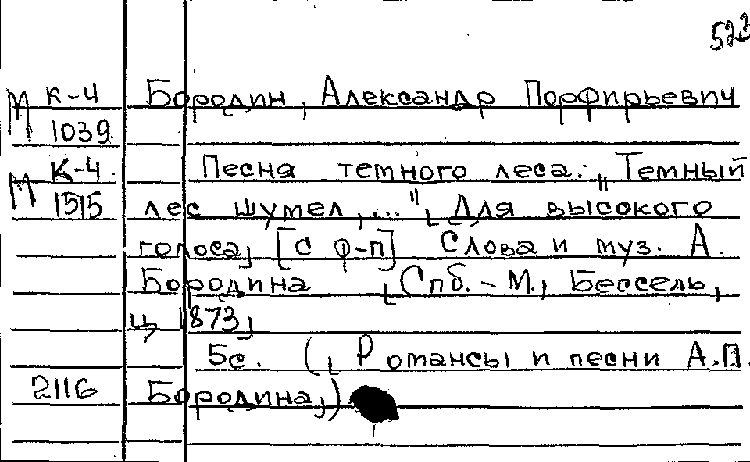 523
М К-4 Бородин, Александр Порфирьевич
1039
М К-4. Песня темного леса. „Темный
1515 лес шумел,..." [Для высокого
голоса] [с ф-п] Слова и муз. А.
Бородина [Спб. - М., Бессель,
ц. 1873]
5с. ([Романсы и песни А.П.
2116 Бородина])